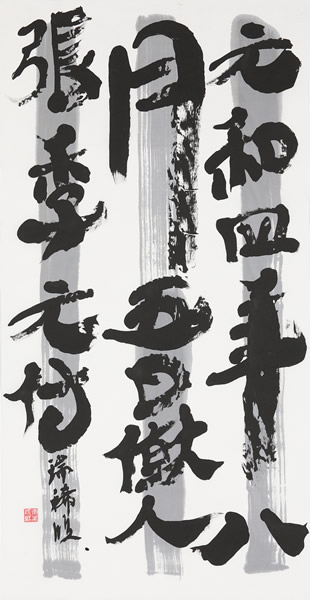 元和四年八
月五日僦人
張季元付